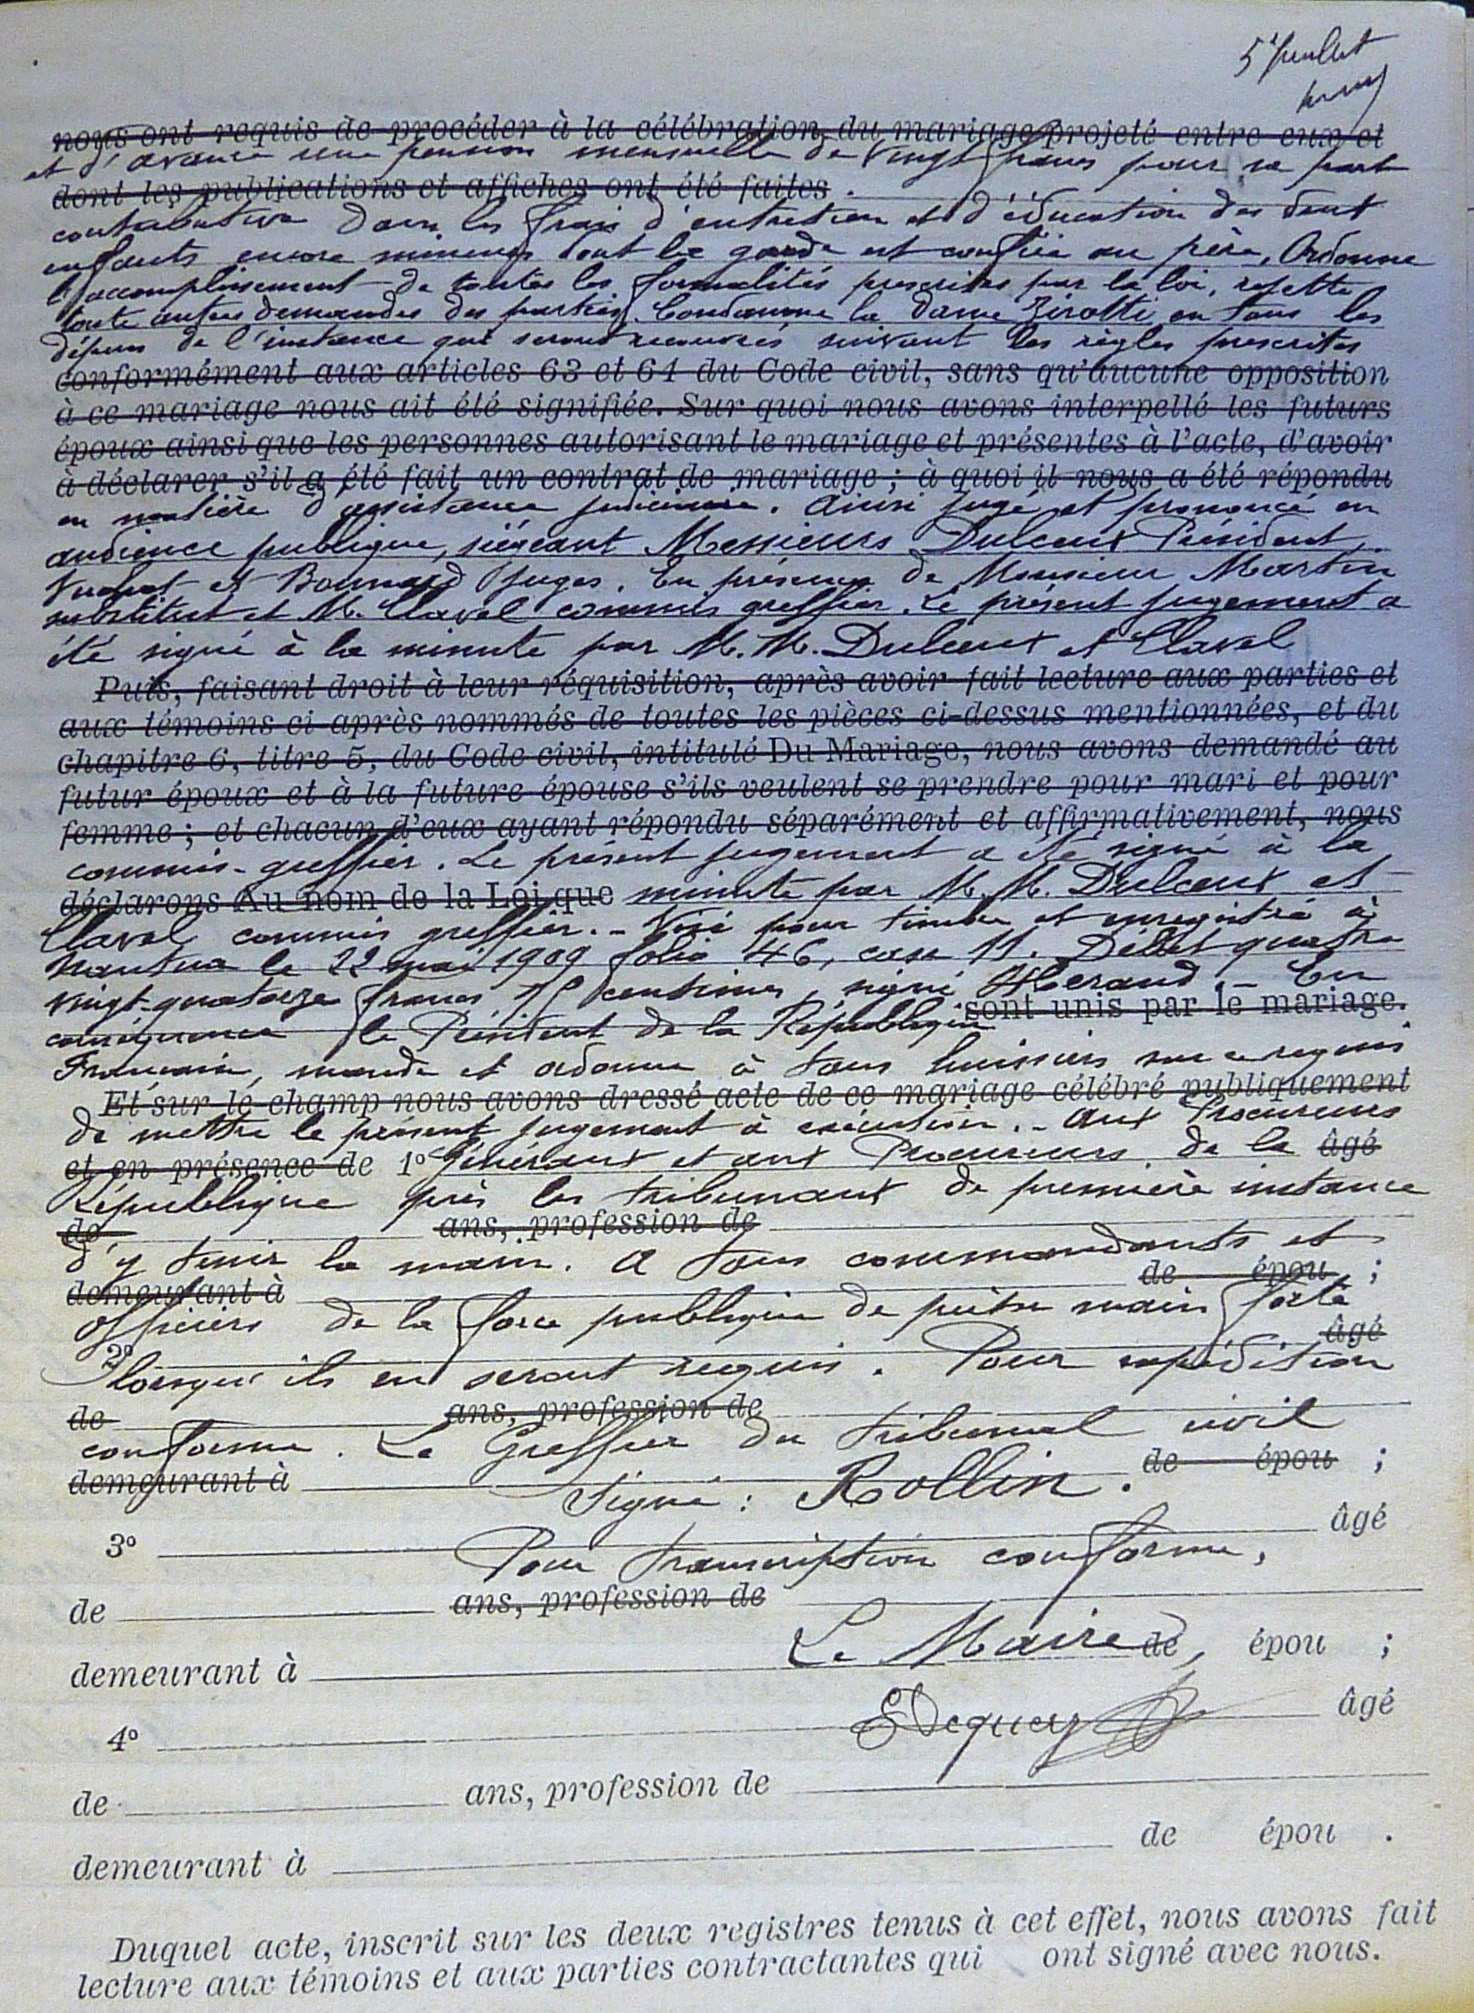 5 Juillet
nous ont requis de procéder à la célébration du mariage projeté entre eux et
et d'avance une pension mensuelle de vingt francs pour sa part
dont les publications et affiches ont été faites
contributive dans les frais d'entretien et d'éducation des deux
enfants encore mineurs dont la garde est confiée au père, Ordonne
l'accomplissement de toutes les formalités prescrites par la loi, rejette
toute autres demandes des parties. Condamne la dame Zirotti en tous les
dépens de l'instance qui seront recouvrés suivant les règles prescrites
conformément aux articles 63 et 64 du Code civil, sans qu'aucune opposition
à ce mariage nous ait été signifiée. Sur quoi nous avons interpellé les futurs
époux ainsi que les personnes autorisant le mariage et présentes à l'acte, d'avoir
à déclarer s'il a été fait un contrat de mariage ; à quoi il nous a été répondu
en matière d'assistance judiciaire. Ainsi jugé et prononcé en
audience publique, siégeant Messieurs Dulceux Président,
et Bounard Juges. En présence de Monsieur Martin
substitut et M. Clavel commis greffier. Le présent jugement a
été signé à la minute par M. M. Dulceux et Clavel
Puis, faisant droit à leur réquisition, après avoir fait lecture aux parties et
aux témoins ci après nommés de toutes les pièces ci-dessus mentionnées, et du
chapitre 6, titre 5, du Code civil, intitulé Du Mariage, nous avons demandé au
futur époux et à la future épouse s'ils veulent se prendre pour mari et pour
femme ; et chacun d'eux ayant répondu séparément et affirmativement, nous
commis-greffier. Le présent jugement a été signé à la
déclarons Au nom de la Loi que minute par M. M. Dulceux et
Clavel commis greffier. - Visé pour timbre et enregistré à
Nantua le 22 mai 1909 folio 46, case 11. Débet quatre
vingt-quatorze francs 75 centimes, signé Héraud. - En
sont unis par le mariage.
conséquence le Président de la République
Française, mande et ordonne à tous huissiers sur ce requis
Et sur le champ nous avons dressé acte de ce mariage célébré publiquement
de mettre le présent jugement à exécution. - Aux Procureurs
et en présence de 1° Généraux et aux Procureurs de la âgé
République près les tribunaux de première instance
de ans, profession de
d'y tenir la main. A tous commandants et
demeurant à de épou ;
officiers de la force publique de prêter main forte
2° âgé
lorsqu'ils en seront requis. Pour expédition
de ans, profession de
conforme. Le Greffier du tribunal civil
demeurant à de épou ;
Signé : Rollin.
3° âgé
Pour transcription conforme,
de ans, profession de
Le Maire,
demeurant à de épou ;
4° âgé
de ans, profession de
demeurant à de épou .
Duquel acte, inscrit sur les deux registres tenus à cet effet, nous avons fait
lecture aux témoins et aux parties contractantes qui ont signé avec nous.